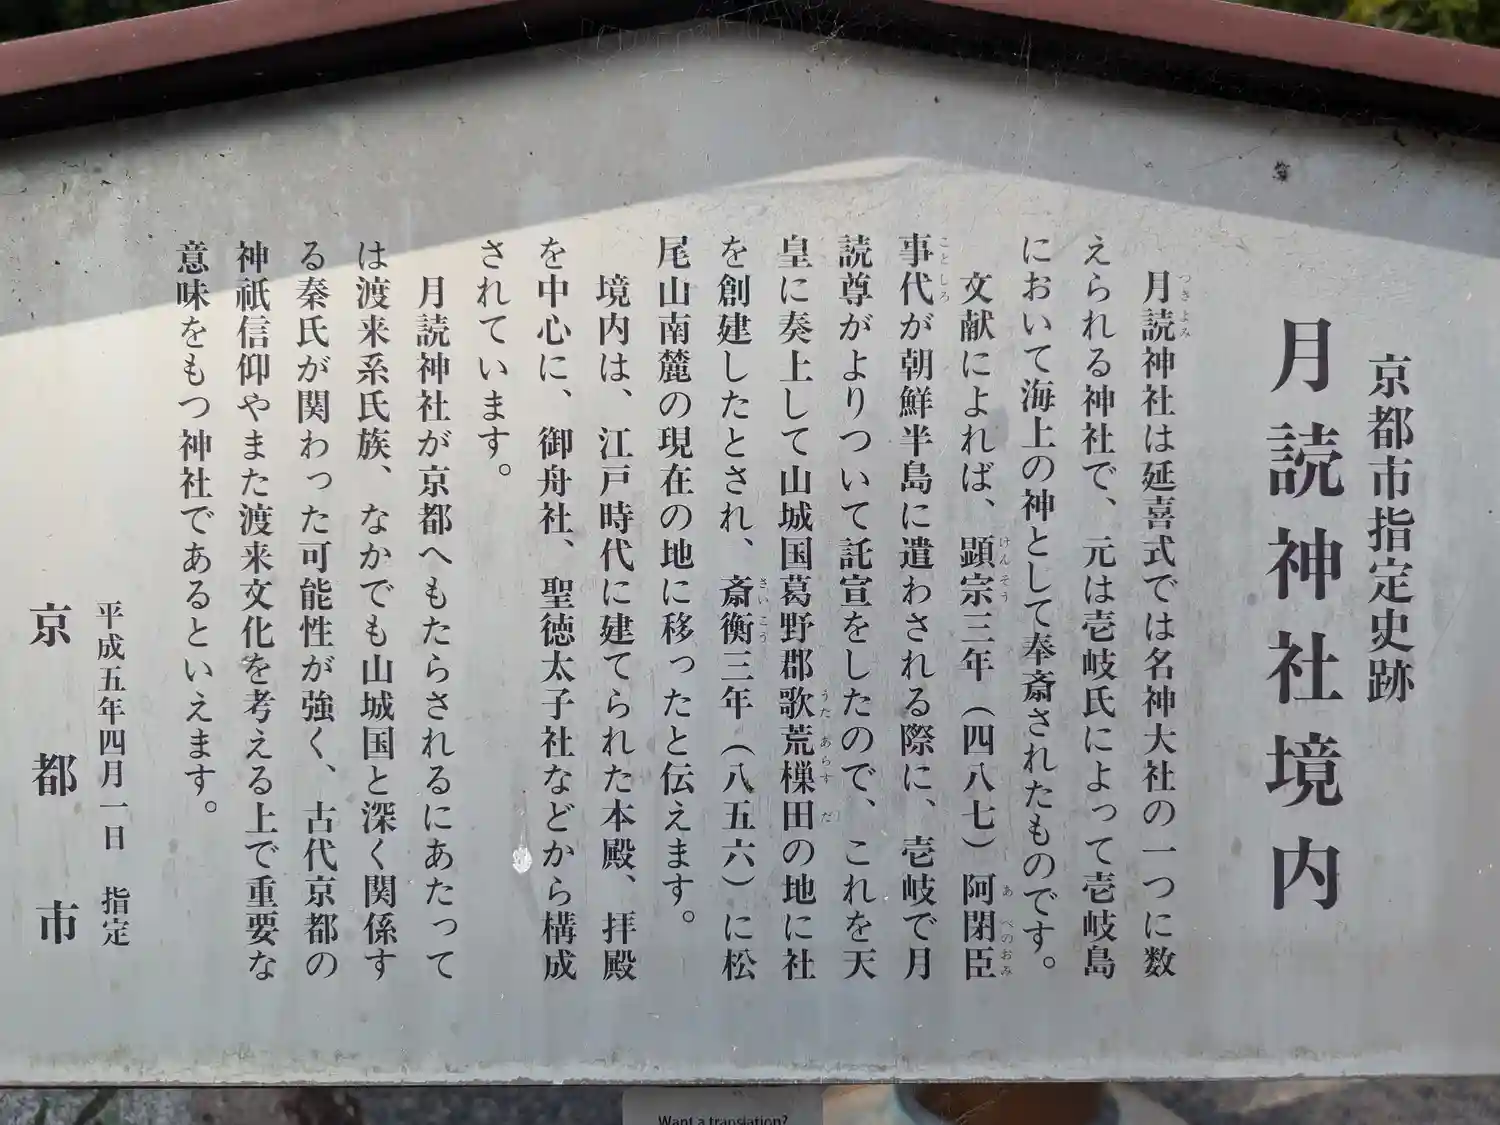 京都市指定史跡
月読神社境内
月読神社は延喜式では名神大社の一つに数
えられる神社で、元は壱岐氏によって壱岐島
において海上の神として奉斎されたものです。
文献によれば、顕宗三年(四八七)阿閉臣
事代が朝鮮半島に遣わされる際に、壱岐で月
読尊がよりついて託宣をしたので、これを天
皇に奏上して山城国葛野郡歌荒樔田の地に社
を創建したとされ、斎衡三年(八五六)に松
尾山南麓の現在の地に移ったと伝えます。
境内は、江戸時代に建てられた本殿、拝殿
を中心に、御舟社、聖徳太子社などから構成
されています。
月読神社が京都へもたらされるにあたって
は渡来系氏族、なかでも山城国と深く関係す
る秦氏が関わった可能性が強く、古代京都の
神祇信仰やまた渡来文化を考える上で重要な
意味をもつ神社であるといえます。
平成五年四月一日 指定
京都市
Want a translation?